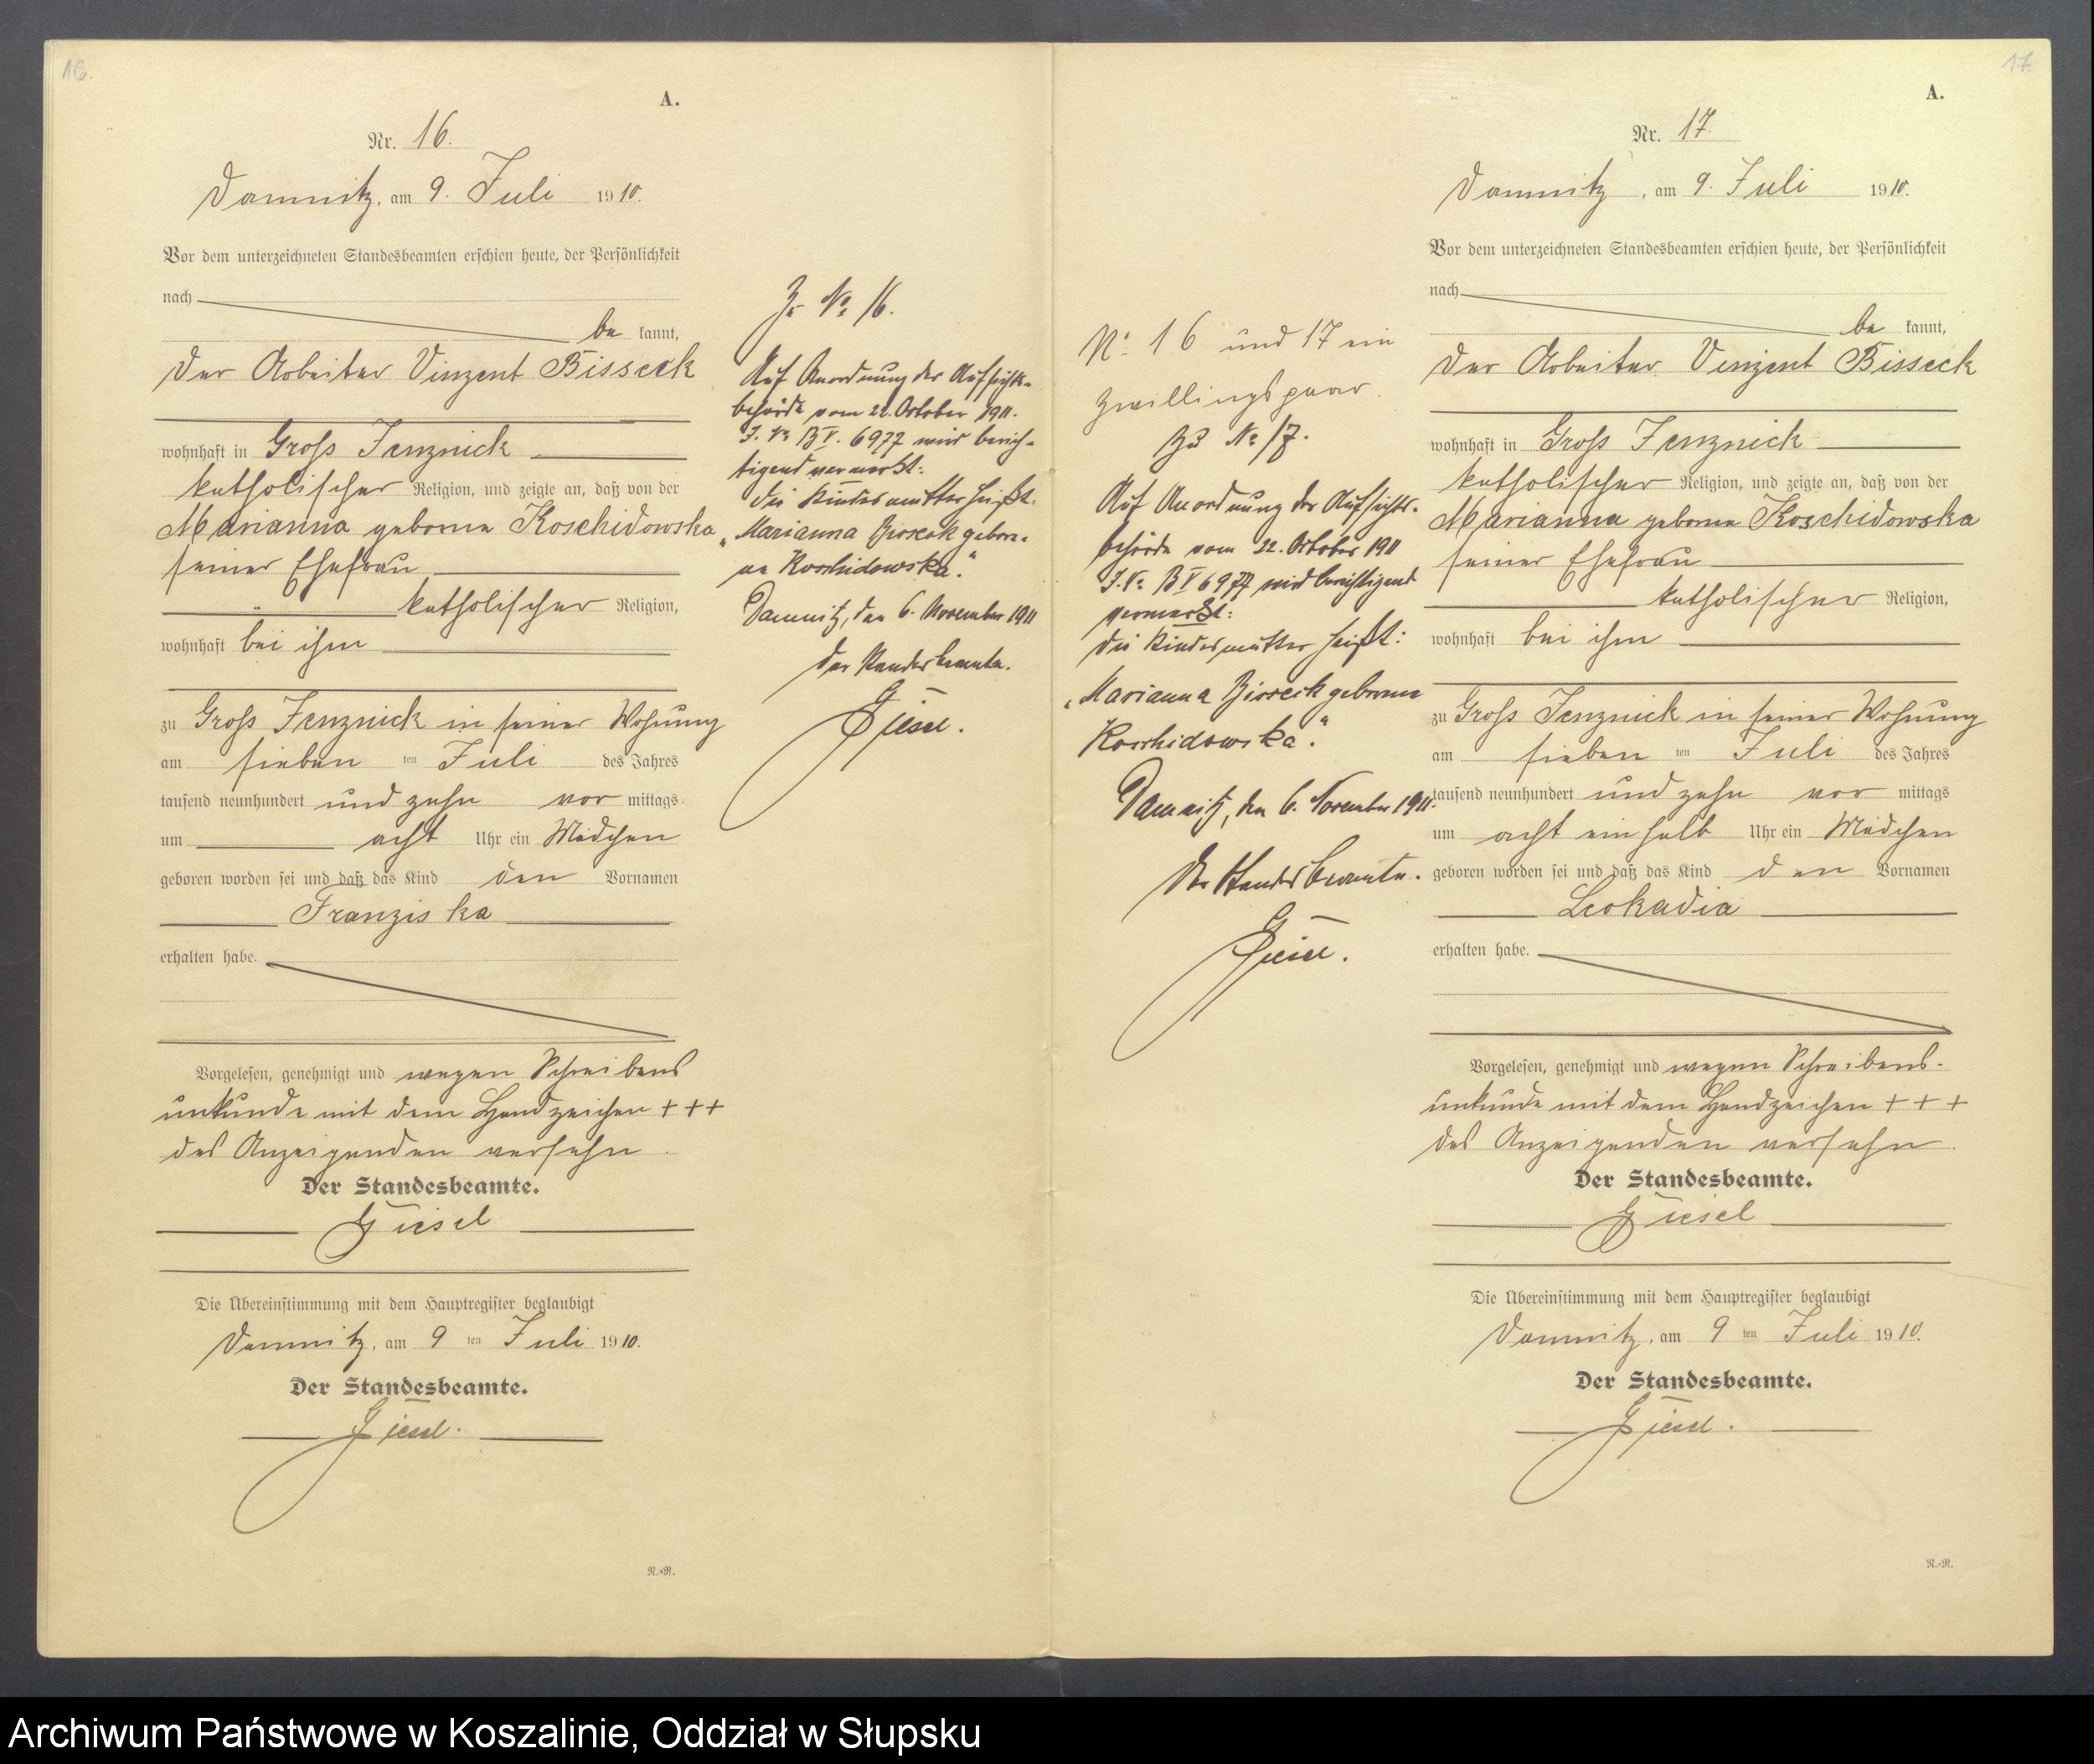 16.
A.
Nr. 16.
Damnitz, am 9. Juli 1910.
Vor dem unterzeichneten Standesbeamten erschien heute, der Persönlichkeit
nach
be kannt,
der Arbeiter Vinzent Bisseck
wohnhaft in Groß Jenznick
katholischer Religion, und zeigte an, daß von der
Marianna geborne Koschidowska
seiner Ehefrau
katholischer Religion,
wohnhaft bei ihm
zu Groß Jenznick in seiner Wohnung
am sieben ten Juli des Jahres
tausend neunhundert und zehn vor mittags
um acht Uhr ein Mädchen
geboren worden sei und daß das Kind den Vornamen
Franziska
erhalten habe.
Vorgelesen, genehmigt und wegen Schreibens
unkunde mit dem Handzeichen +++
des Anzeigenden versehn.
Der Standesbeamte.
Giesel
Die Übereinstimmung mit dem Hauptregister beglaubigt
Damnitz, am 9 ten Juli 1910.
Der Standesbeamte.
Giesel.
N.=N.
Zu No 16.
Auf Anordnung der Aufsichts-
behörde vom 22. Oktober 1911.
J. No B V. 6977 wird berich-
tigend vermerkt:
die Kindesmutter heißt:
„Marianna Bisseck gebore-
ne Koschidowska."
Damnitz, den 6. November 1911
Der Standesbeamte.
Giesel.
17.
A.
Nr. 17.
Damnitz, am 9. Juli 1910.
Vor dem unterzeichneten Standesbeamten erschien heute, der Persönlichkeit
nach
be kannt,
der Arbeiter Vinzent Bisseck
wohnhaft in Groß Jenznick
katholischer Religion, und zeigte an, daß von der
Marianna geborne Koschidowska
seiner Ehefrau
katholischer Religion,
wohnhaft bei ihm
zu Groß Jenznick in seiner Wohnung
am sieben ten Juli des Jahres
tausend neunhundert und zehn vor mittags
um acht ein halb Uhr ein Mädchen
geboren worden sei und daß das Kind den Vornamen
Leokadia
erhalten habe.
Vorgelesen, genehmigt und wegen Schreibens-
unkunde mit dem Handzeichen +++
des Anzeigenden versehn.
Der Standesbeamte.
Giesel
Die Übereinstimmung mit dem Hauptregister beglaubigt
Damnitz, am 9 ten Juli 1910.
Der Standesbeamte.
Giesel.
N.=N.
No 16 und 17 ein
Zwillingspaar.
Zu No 17.
Auf Anordnung der Aufsichts-
behörde vom 22. Oktober 1911
J. No B V 6977 wird berichtigend
vermerkt:
die Kindesmutter heißt:
„Marianna Bisseck geborene
Koschidowska."
Damnitz, den 6. November 1911.
Der Standesbeamte.
Giesel.
Archiwum Państwowe w Koszalinie, Oddział w Słupsku